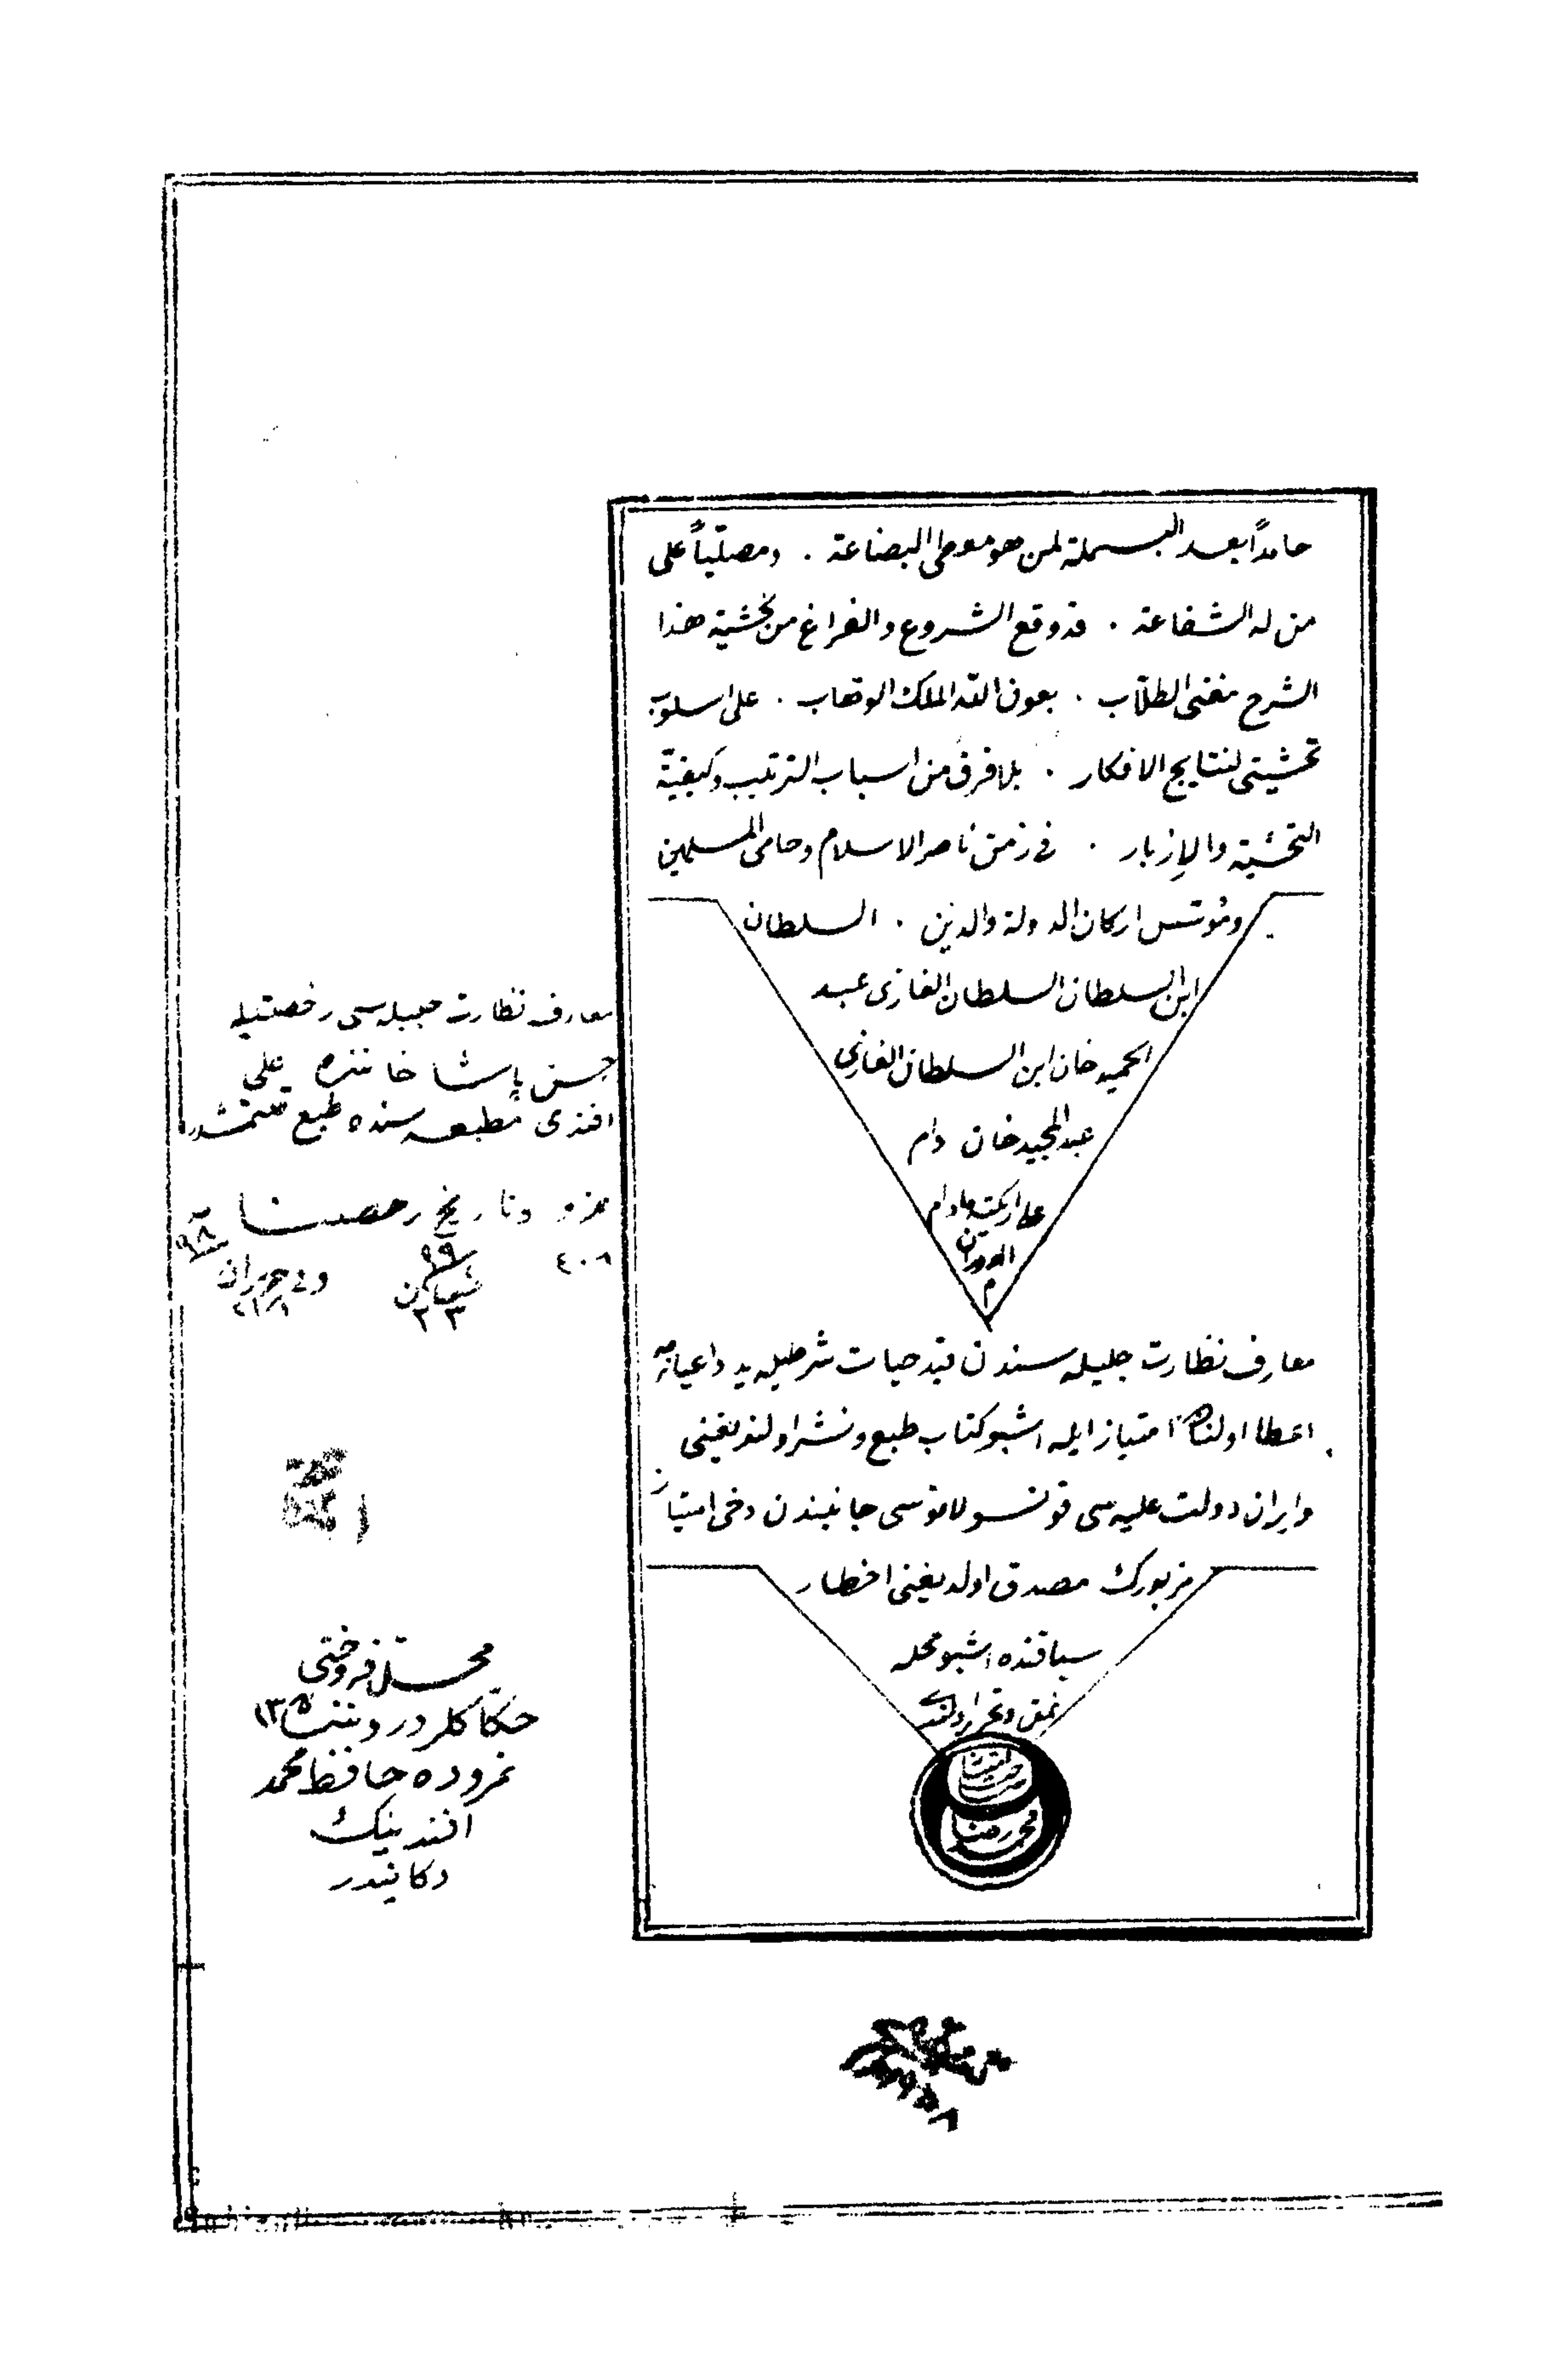 حامداً بعد البسملة لمن هو معطى البضاعة . ومصلّياً على
من له الشفاعة . قد وقع الشروع والفراغ من تحشية هذا
الشرح مغنى الطلّاب . بعون الله الملك الوهاب . على اسلوب
تحشيتى لنتايج الافكار . بلا فرق من اسباب الترتيب وكيفيّة
التحشية والإزبار . فى زمن ناصر الاسلام وحامى المسلمين
ومؤسّس اركان الدولة والدين . السلطان
ابن السلطان السلطان الغازى عبد
الحميد خان ابن السلطان الغازى
عبد المجيد خان دام
على اريكته مادام
الدوران
م
معارف نظارت جليله سندن قيد حيات شرطيله يد داعيانه مه
اعطا اولنان امتياز ايله اشبو كتاب طبع ونشر اولنديغنى
وايران دولت عليه سى قونسولاتوسى جانبندن دخى امتياز
مزبورك مصدق اولديغنى اخطار
سياقنده اشبو محله
نمق وتحرير اولندى
محمد رضا
معارف نظارت جليله سى رخصتيله
حسن پاشا خاننده على
افندى مطبعه سنده طبع اتمشدر
نمرو وتاريخ رخصتنا
٤٠٨
شعبان
٢٣
وفى حزيران
٩٨
محل فروختى
حكاكلرده
نمروده حافظ محمد
افندينك
دكانيدر